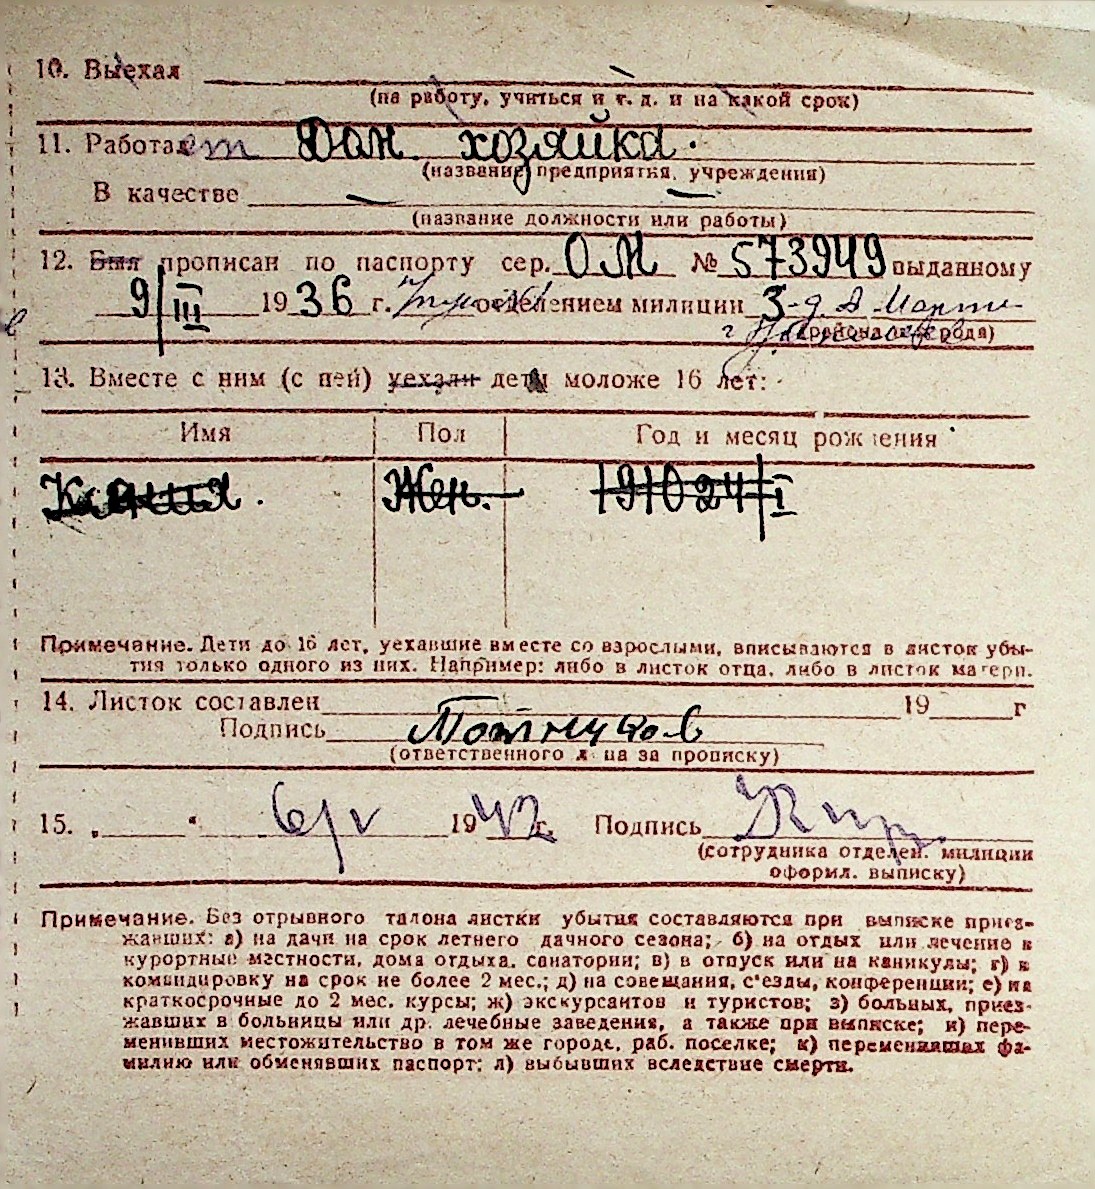 10. Выехал
(на работу, учиться и т. д. и на какой срок)
11. Работает Дом хозяйка.
(название предприятия, учреждения)
В качестве — —
(название должности или работы)
12. Был прописан по паспорту сер. ОМ № 573949 выданному
9/III 1936 г. отделением милиции 3-д
(района, города)
13. Вместе с ним (с ней) уехали дети моложе 16 лет:
Имя Пол Год и месяц рождения
Жен. 1910 24/I
Примечание. Дети до 16 лет, уехавшие вместе со взрослыми, вписываются в листок убы-
тия только одного из них. Например: либо в листок отца, либо в листок матери.
14. Листок составлен 19 г
Подпись
(ответственного лица за прописку)
15. „ “ 6/V 1942 г. Подпись
(сотрудника отделен. милиции
оформ. выписку)
Примечание. Без отрывного талона листки убытия составляются при выписке приез-
жавших: а) на дачи на срок летнего дачного сезона; б) на отдых или лечение в
курортные местности, дома отдыха, санатории; в) в отпуск или на каникулы; г) в
командировку на срок не более 2 мес.; д) на совещания, с'езды, конференции; е) на
краткосрочные до 2 мес. курсы; ж) экскурсантов и туристов; з) больных, приез-
жавших в больницы или др. лечебные заведения, а также при выписке; и) пере-
менивших местожительство в том же городе, раб. поселке; к) переменивших фа-
милию или обменявших паспорт; л) выбывших вследствие смерти.